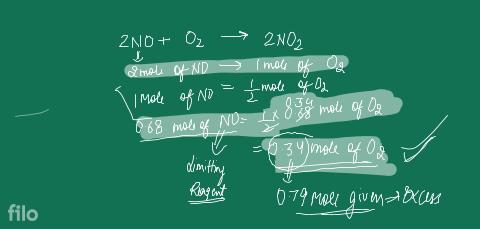 2NO + O2 → 2NO2
2 mole of NO → 1 mole of O2
1 Mole of NO = 1/2 mole of O2
0.68 mole of NO = 1/2 × 0.68 mole of O2
0.34
= 0.34 mole of O2
Limiting
Reagent
0.79 mole given → Excess
filo